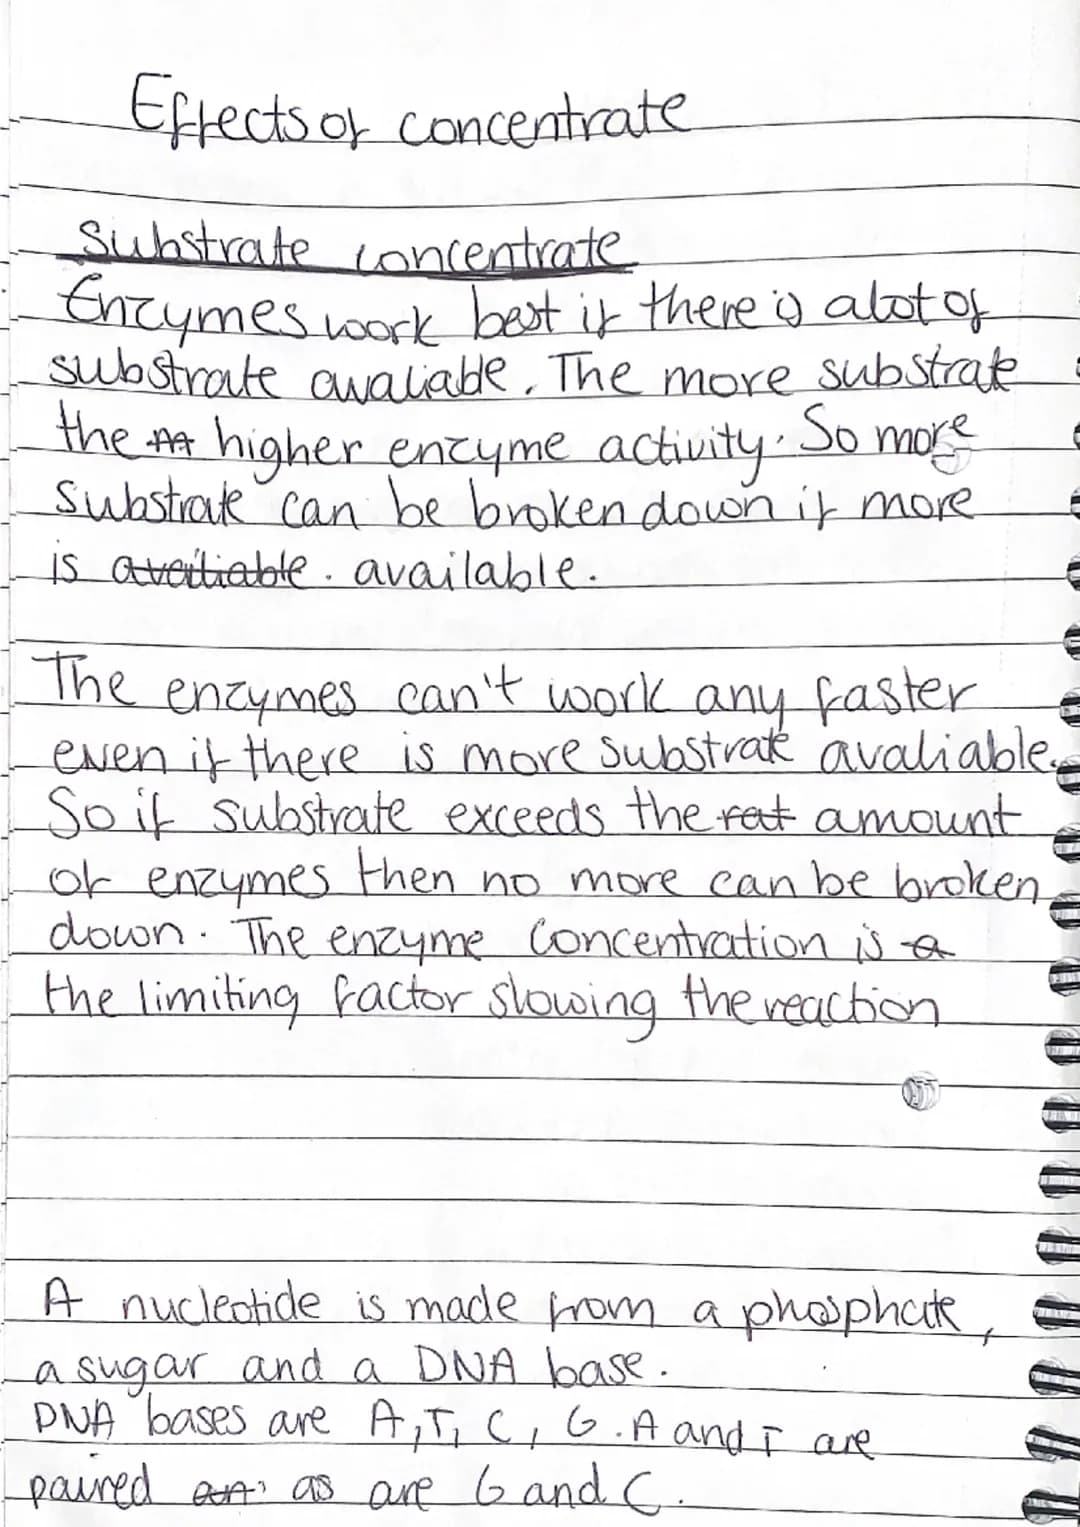 Effects of concentrate
Substrate concentrate
Enzymes work best if there is alot of
substrate avaliable. The more substrate
the higher enzyme activity. So more
substrate can be broken down if more
is availiable. available.
The enzymes can't work any faster
even if there is more substrate avaliable.
So if substrate exceeds the rat amount
of enzymes then no more can be broken
down. The enzyme concentration is a
the limiting factor slowing the reaction
A nucleotide is made from a phosphate,
a sugar and a DNA base.
DNA bases are A, T, C, G. A and T are
paired as are G and C.